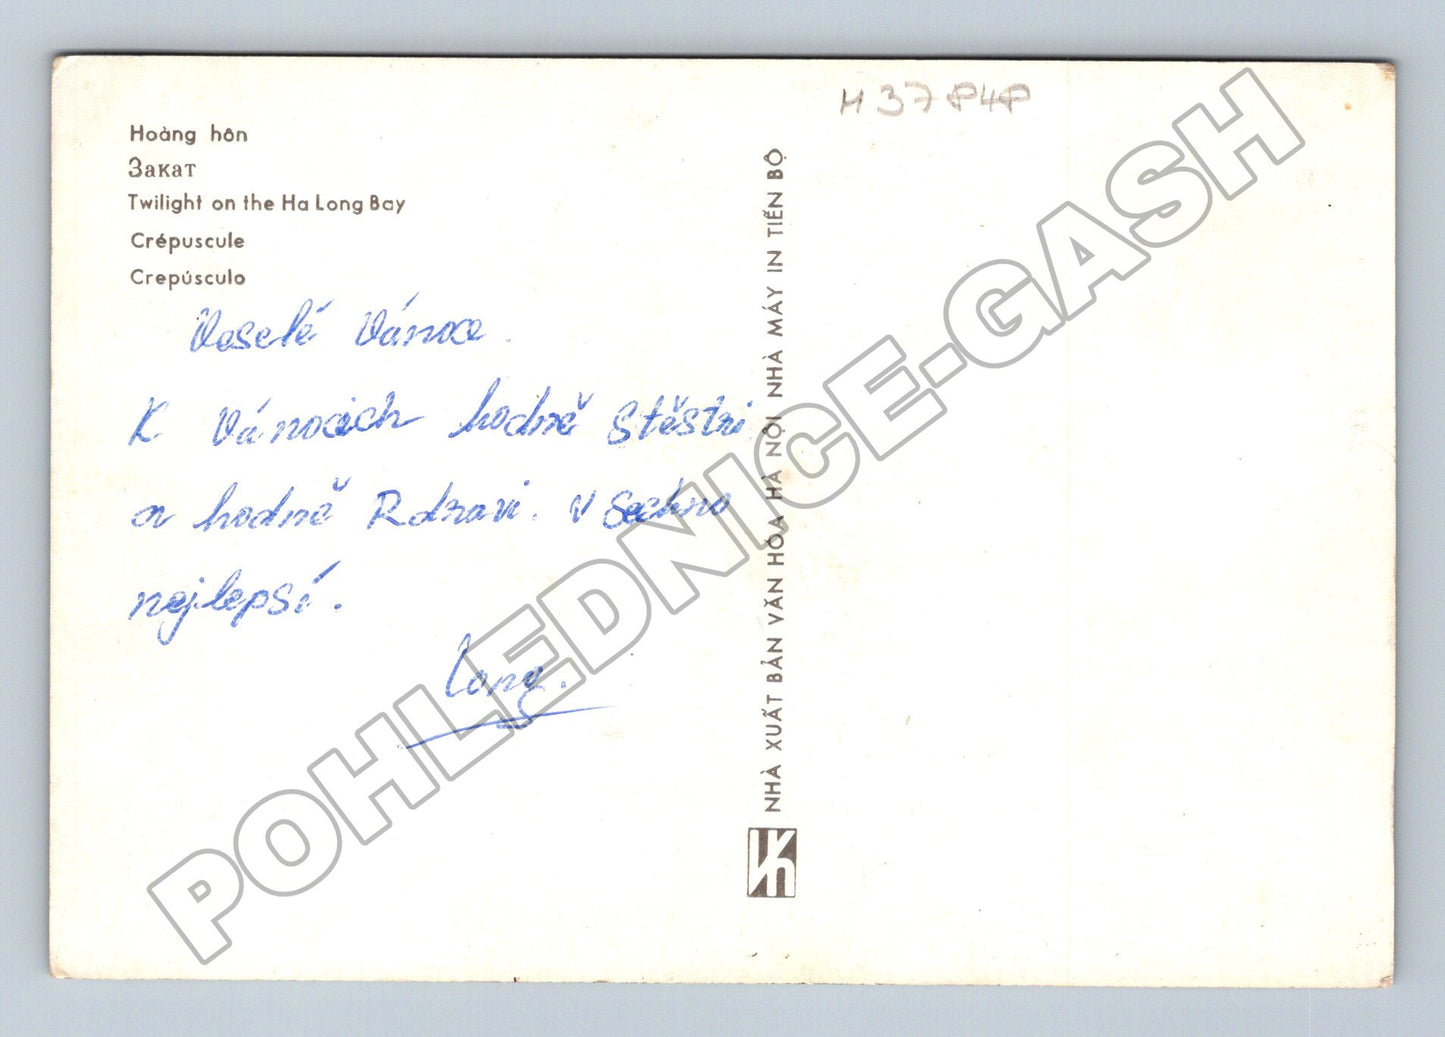 H 37848
Hoàng hôn
Закат
Twilight on the Ha Long Bay
Crépuscule
Crepúsculo
Veselé Vánoce.
K Vánocich hodně Stěstri
a hodně Rdravi. vsechno
nejlepsí.
Long.
NHÀ XUẤT BẢN VĂN HÓA HÀ NỘI NHÀ MÁY IN TIẾN BỘ
POHLEDNICE-GASH